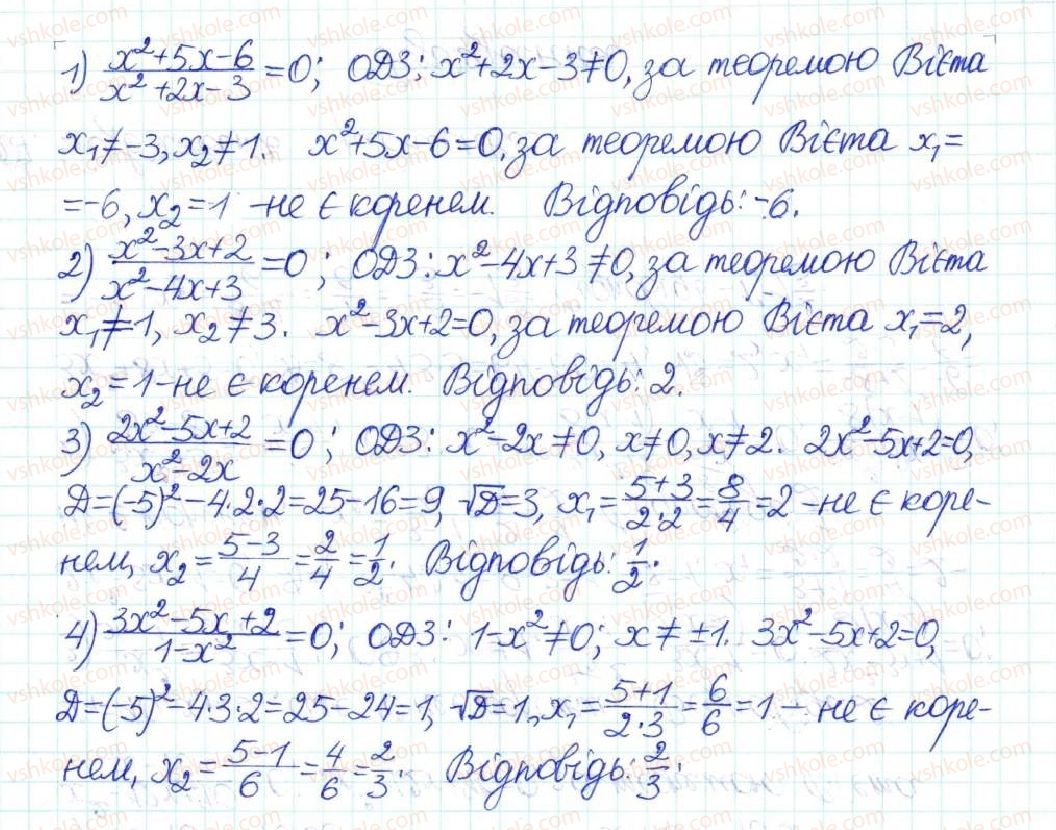 1) (x²+5x-6)/(x²+2x-3)=0; ОДЗ: x²+2x-3≠0, за теоремою Вієта
x₁≠-3, x₂≠1. x²+5x-6=0, за теоремою Вієта x₁=
=-6, x₂=1 -не є коренем. Відповідь: -6.
2) (x²-3x+2)/(x²-4x+3)=0; ОДЗ: x²-4x+3≠0, за теоремою Вієта
x₁≠1, x₂≠3. x²-3x+2=0, за теоремою Вієта x₁=2,
x₂=1-не є коренем. Відповідь: 2.
3) (2x²-5x+2)/(x²-2x)=0; ОДЗ: x²-2x≠0, x≠0, x≠2. 2x²-5x+2=0,
D=(-5)²-4·2·2=25-16=9, √D=3, x₁=(5+3)/(2·2)=8/4=2 -не є коре-
нем, x₂=(5-3)/4=2/4=1/2. Відповідь: 1/2.
4) (3x²-5x+2)/(1-x²)=0; ОДЗ: 1-x²≠0; x≠±1. 3x²-5x+2=0,
D=(-5)²-4·3·2=25-24=1, √D=1, x₁=(5+1)/(2·3)=6/6=1 - не є коре-
нем, x₂=(5-1)/6=4/6=2/3. Відповідь: 2/3.